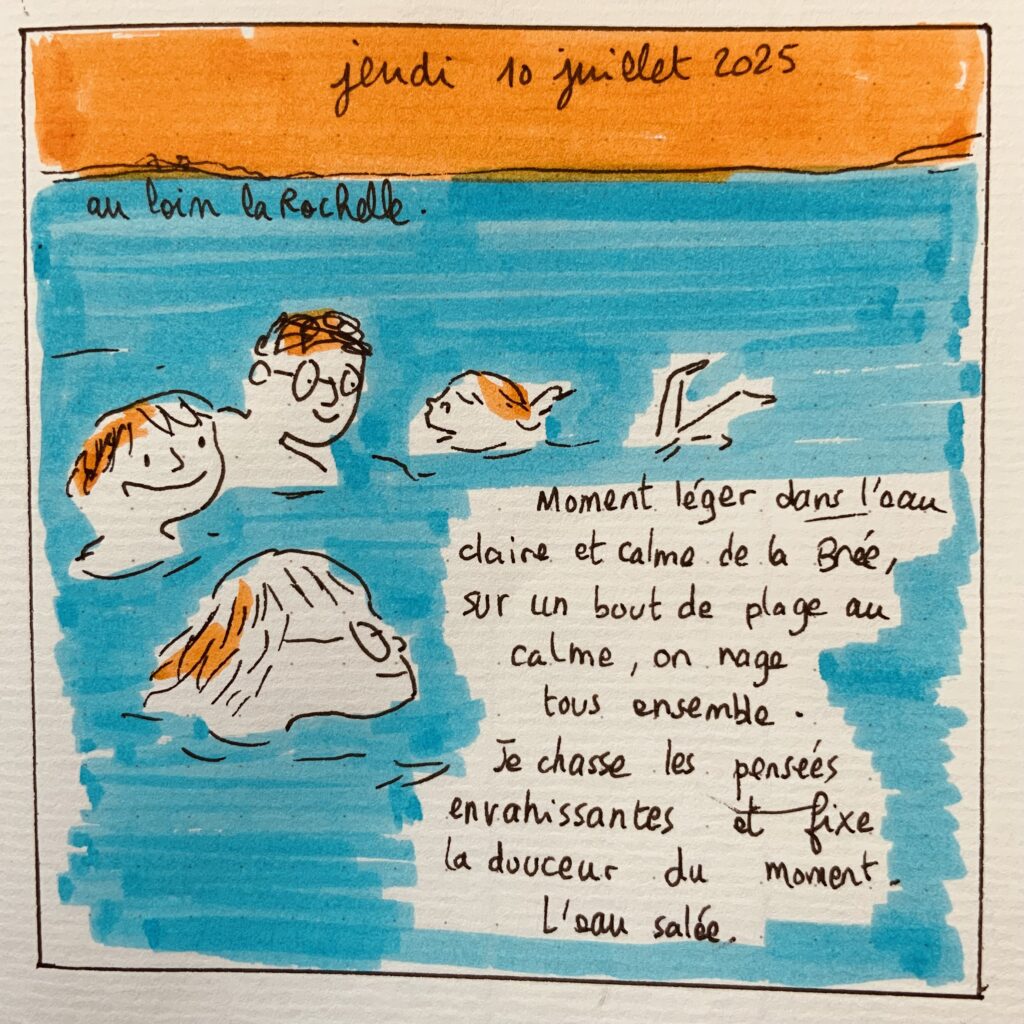 jeudi 10 juillet 2025
au loin la Rochelle.
Moment léger dans l'eau
claire et calme de la Brée,
sur un bout de plage au
calme, on nage
tous ensemble.
Je chasse les penseés
envahissantes et fixe
la douceur du moment.
L'eau salée.